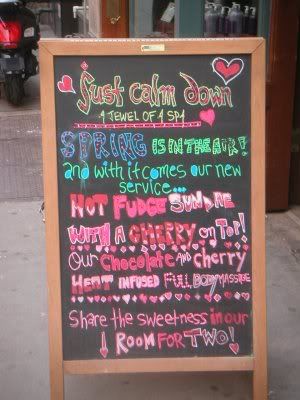 Just calm down
A JEWEL OF A SPA
SPRING IS IN THE AIR!
and with it comes our new
service...
HOT FUDGE SUNDAE
WITH A CHERRY on TOP!
Our Chocolate AND cherry
HEAT INFUSED FULL BODY MASSAGE
Share the sweetness in our
ROOM FOR TWO!